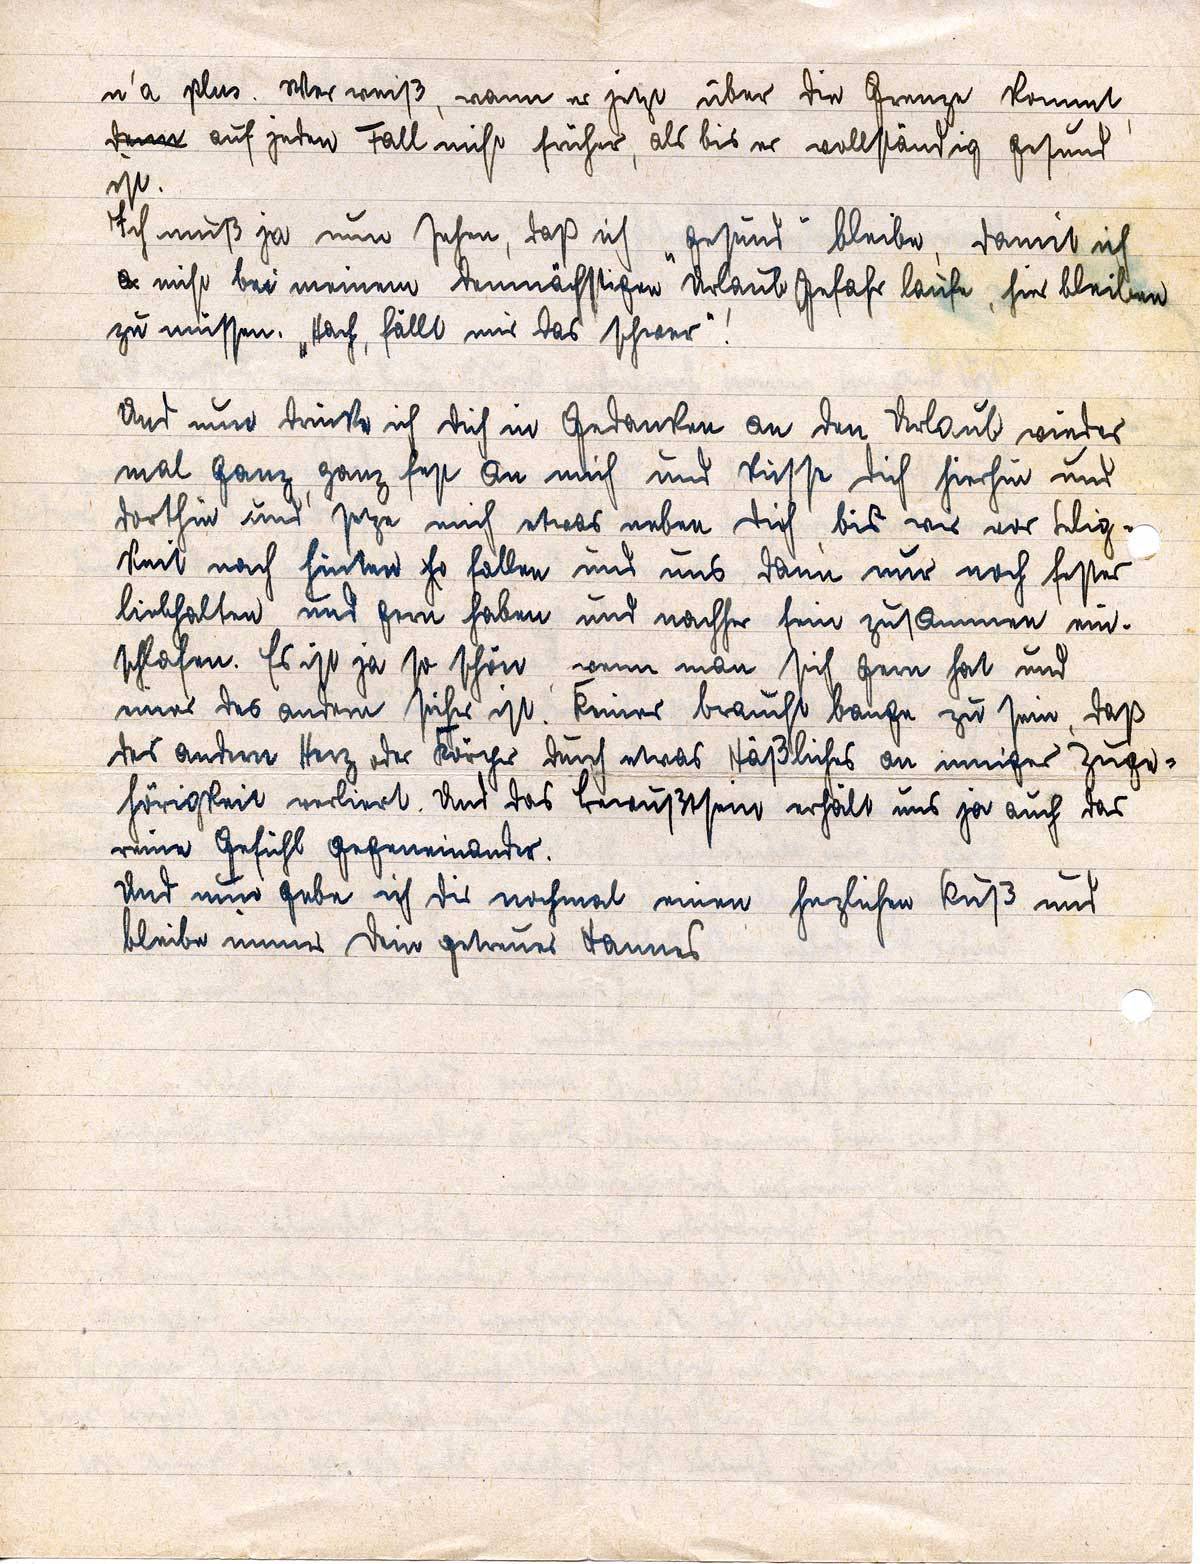 n'a plus. Wer weiß, wann er jetzt über die Grenze kommt,
denn auf jeden Fall nicht früher, als bis er vollständig gesund
ist.
Ich muß ja nun sehen, daß ich „gesund" bleibe, damit ich
nicht bei meinem demnächstigen Urlaub Gefahr laufe, hier bleiben
zu müssen. „Hach, fällt mir das schwer"!
Und nun drücke ich Dich in Gedanken an den Urlaub wieder
mal ganz, ganz fest an mich und küsse Dich hierhin und
dorthin und setze mich etwas neben Dich, bis wir vor Selig-
keit nach hinten fallen und uns dann nur noch fester
liebhalten und gern haben und nachher fein zusammen ein-
schlafen. Es ist ja so schön, wenn man sich gern hat und
einer des andern sicher ist. Keiner braucht bange zu sein, daß
des andern Herz oder Körper durch etwas Häßliches an inniger Zuge-
hörigkeit verliert. Und das Bewußtsein erhält uns ja auch das
reine Gefühl gegeneinander.
Und nun gebe ich Dir nochmal einen herzlichen Kuß und
bleibe immer Dein getreuer Hannes